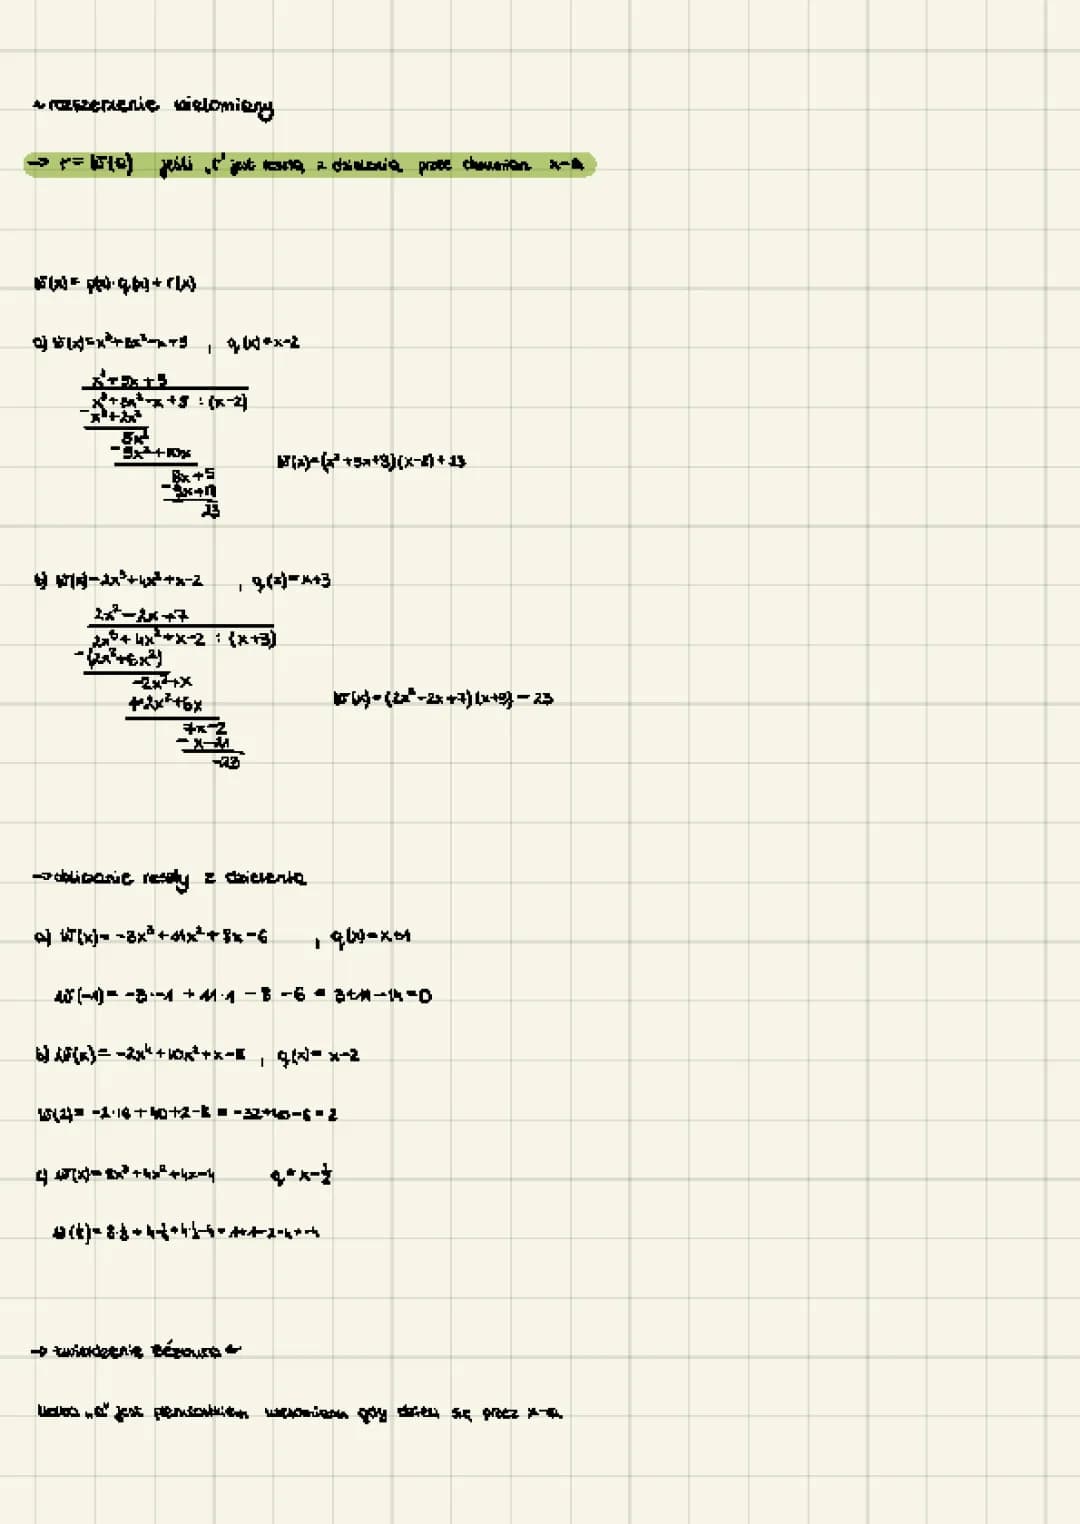 ~ rozszerzenie wielomiany
→ r = W(a) jeśli „r" jest resztą z dzielenia przez dwumian x-a
W(x) = p(x)·q(x) + r(x)
a) W(x)=x³+3x²-x+5 , q(x)=x-2
x²+5x+9
x³+3x²-x+5 : (x-2)
5x²
-5x²+10x
23
b) W(x)=2x³+4x²+x-2 , q(x)=x+3
2x²-2x+7
2x³+4x²+x-2 : (x+3)
-(2x³+6x²)
-2x²+x
+2x²+6x
W(x)=(2x²-2x+7)(x+3) - 23
7x-2
-23
→ obliczanie reszty z dzielenia
a) W(x)= -3x³+11x²+8x-6 , q(x)=x+1
W(-1)= -3·-1 +11·1 - 8 -6 = 3+11-14=0
b) W(x)= -2x⁴+10x²+x-8 , q(x)= x-2
W(2)= -2·16+40+2-8 = -32+40-6=2
c) W(x)=8x³+4x²+4x-4 q=x-½
→ twierdzenie Bézouta
liczba „a" jest pierwiastkiem wielomianu gdy dzieli się przez x-a.